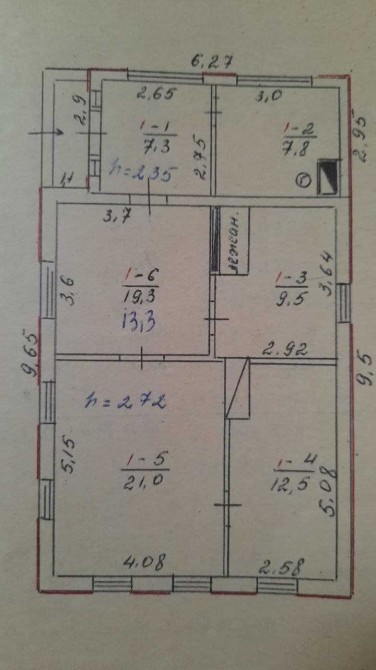 6,27
2,65
3,0
2,9
1-1
7,3
2,75
1-2
7,8
2,95
h=2,35
H
3,7
лежан.
3,6
1-6
19,3
13,3
1-3
9,5
3,64
2.92
9,65
9,5
h=2,72
5,15
1-5
21,0
1-4
12,5
5,08
4.08
2.58